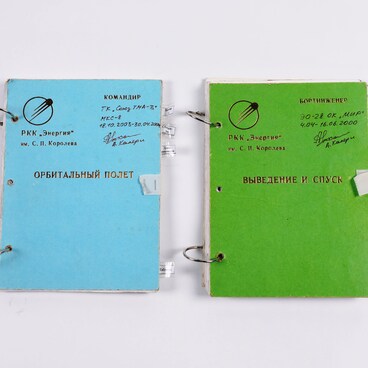 КОМАНДИР
ТК „Союз ТМА-3"
МКС-8
18.10.2003-30.04.2004
РКК „Энергия"
им. С. П. Королева
А. Калери
ОРБИТАЛЬНЫЙ ПОЛЕТ
БОРТИНЖЕНЕР
ЭО-28 ОК „МИР"
4.04-16.06.2000
РКК „Энергия"
им. С. П. Королева
А. Калери
ВЫВЕДЕНИЕ И СПУСК